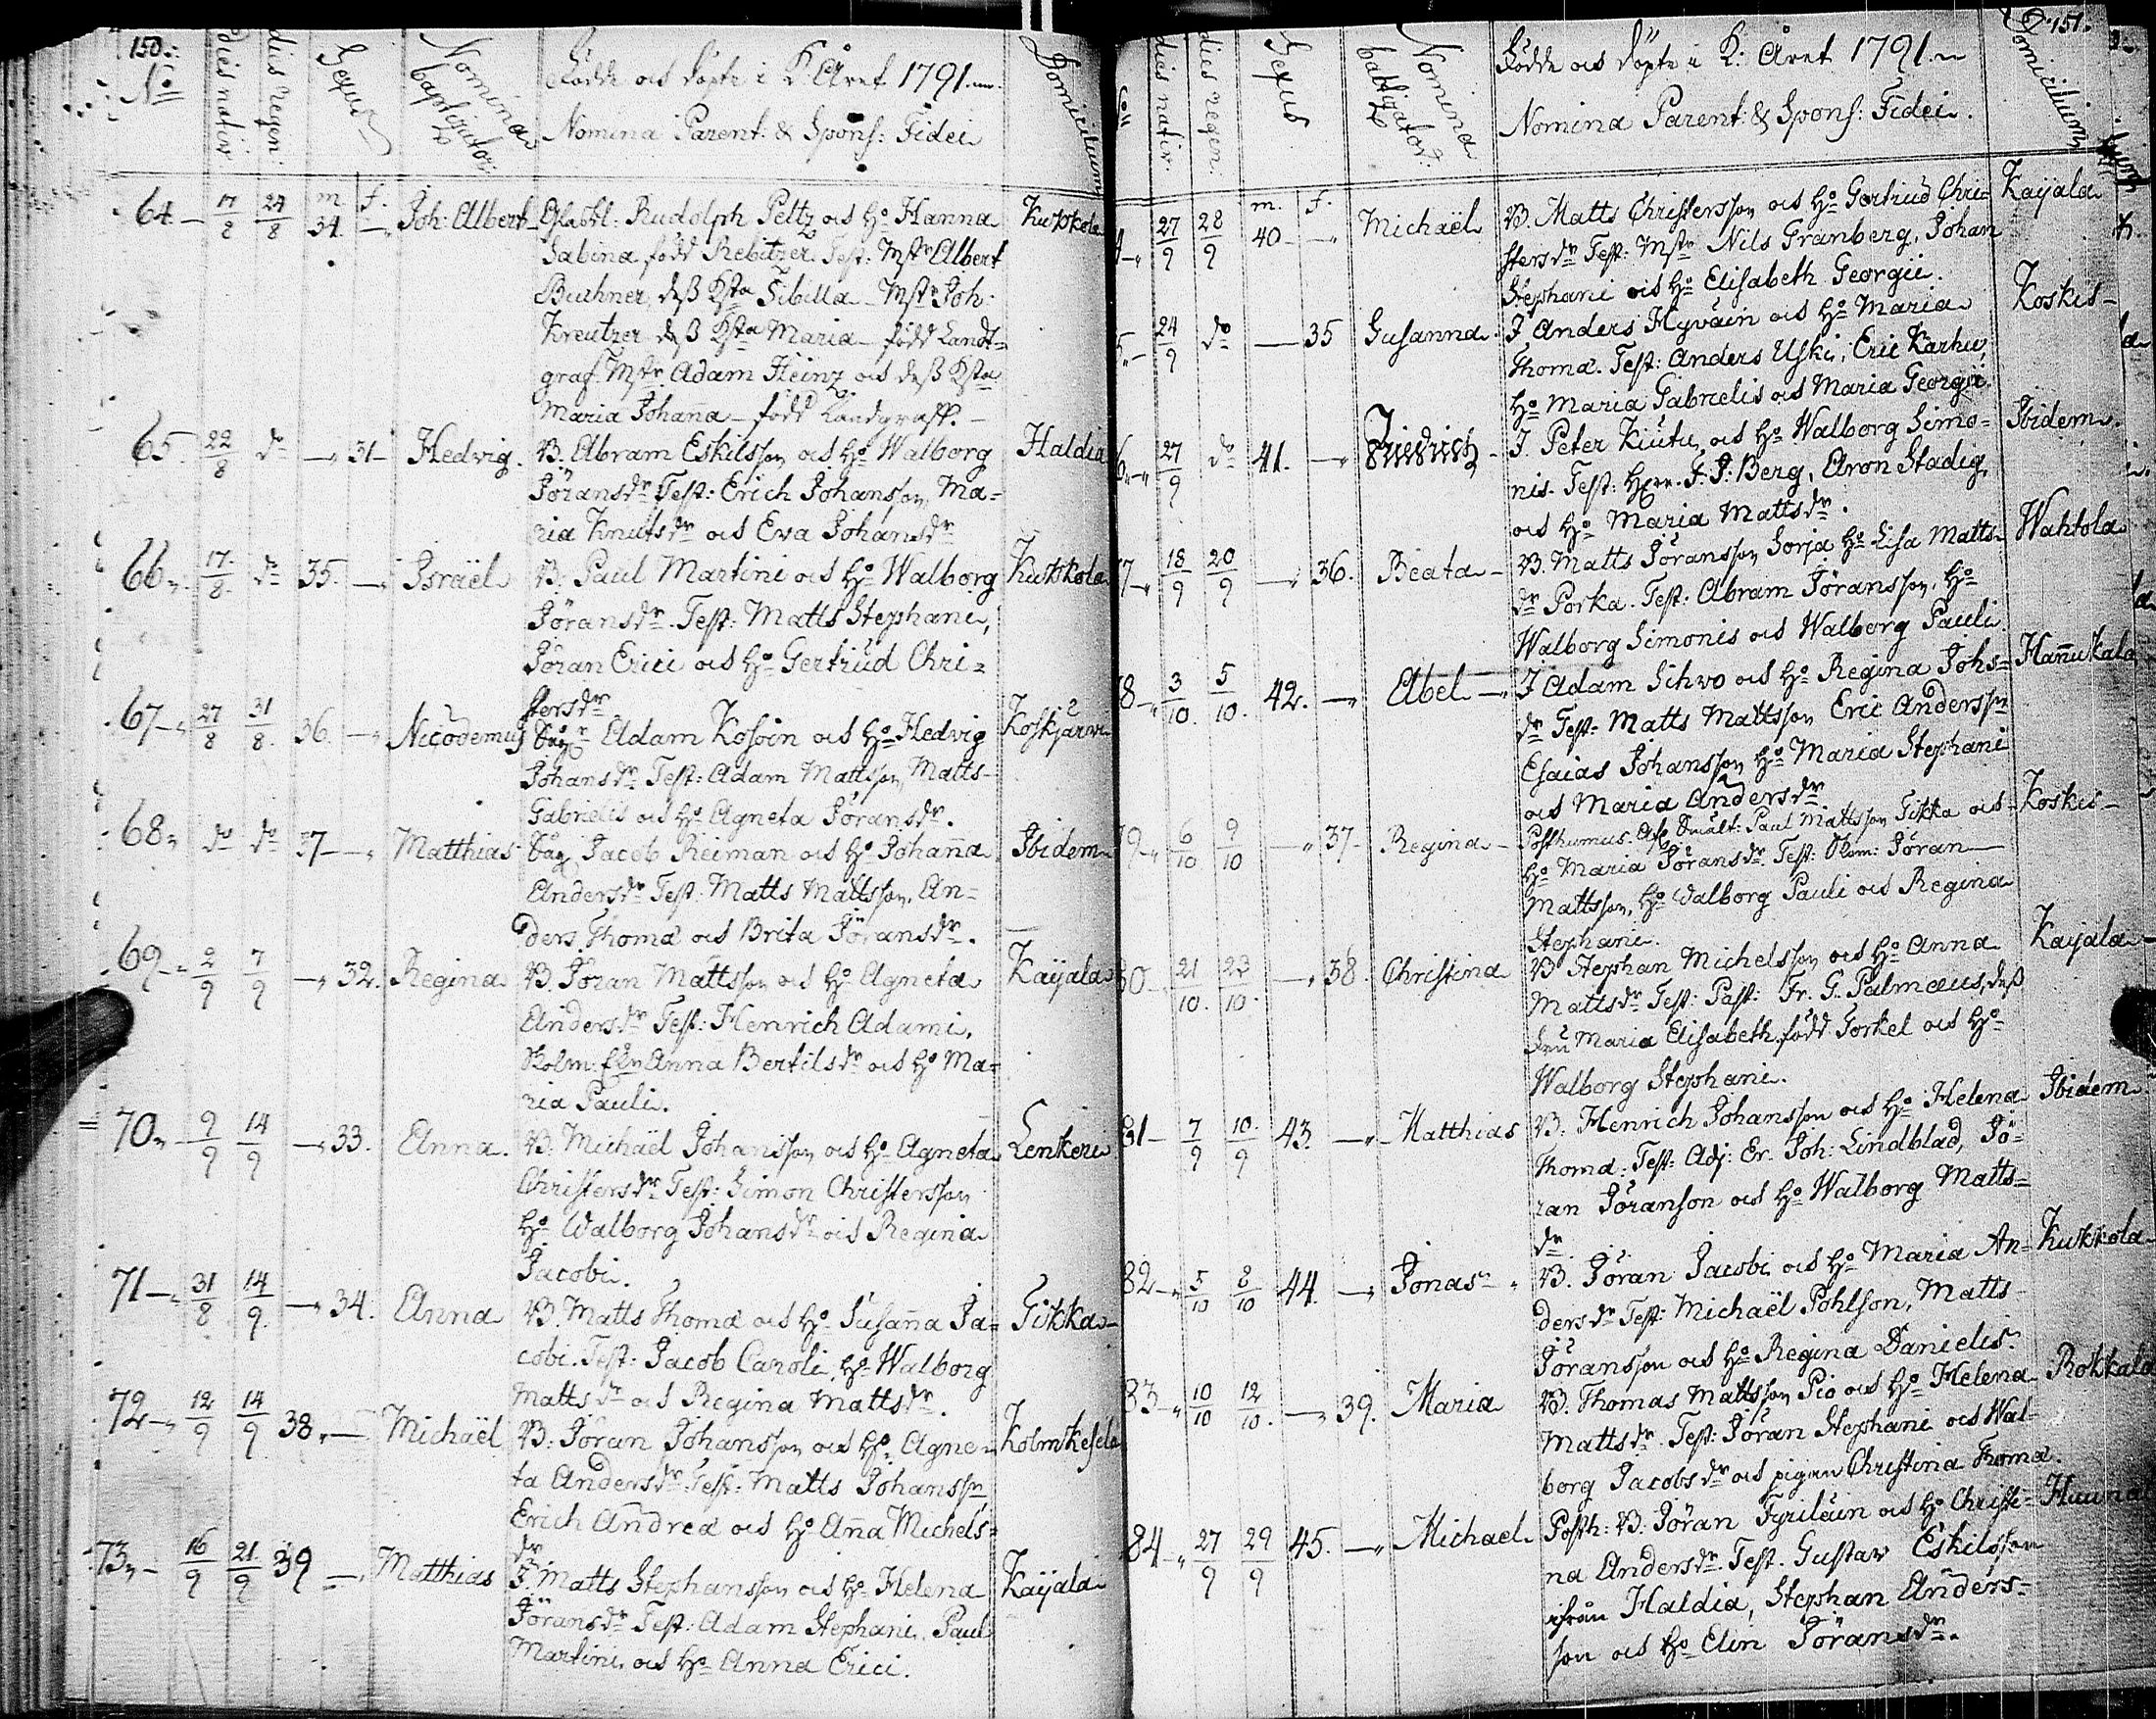 150.
Nº dies nativ. dies regen: Sexus Nomina baptizator: Födde och döpte i K: Året 1791. Domicilium
Nomina Parent: & Spons: Fidei
m f.
64 17/8 24/8 34. Joh: Albert Glasbl: Rudolph Peltz och Ho Hanna Kukkola
Sabina född Rebitzer. Test: Mstr Albert
Buchner, dess Hsta Sibilla Mstr Joh:
Kreutzer dess Hsta Maria född Landt=
graf. Mstr Adam Heinz och dess Hsta
Maria Johana född Landgraff.
65. 22/8 do 31 Hedvig. B. Abram Eskilsson och Ho Walborg Haldia
Jöransdr Test: Erich Johansson, Ma=
ria Knutsdr och Eva Johansdr
66 17/8 do 35. Israël B. Paul Martini och Ho Walborg Kukkola
Jöransdr. Test: Matts Stephani,
Jöran Erici och Ho Gertrud Chri=
stersdr
67 27/8 31/8 36. Nicodemus Adam Kosoin och Ho Hedvig Koskjärvi
Johansdr. Test: Adam Mattsson, Matts
Gabrielis och Ho Agneta Jöransdr.
68 do do 37 Matthias Jacob Reiman och Ho Johana Ibidem
Andersdr Test: Matts Mattsson, An=
ders Thomæ och Brita Jöransdr.
69 2/9 7/9 32. Regina B. Jöran Mattsson och Ho Agneta Kaÿala
Andersdr Test: Henrich Adami,
Anna Bertilsdr och Ho Ma=
ria Pauli.
70 9/9 14/9 33. Anna. B. Michaël Johansson och Ho Agneta Lenkeri
Christersdr Test: Simon Christersson
Ho Walborg Johansdr och Regina
Jacobi.
71 31/8 14/9 34. Anna B. Matts Thomæ och Ho Susana Ja= Tikka
cobi. Test: Jacob Caroli, Ho Walborg
Mattsdr och Regina Mattsdr.
72 12/9 14/9 38. Michaël B. Jöran Johansson och Ho Agne= Kolmikesela
ta Andersdr. Test: Matts Johansson
Erich Andreæ och Ho Ana Michels=
dr
73 16/9 21/9 39 Matthias J. Matts Stephansson och Ho Helena Kaÿala
Jöransdr Test: Adam Stephani, Paul
Martini, och Ho Anna Erici.
151.
dies nativ. dies regen: Sexus Nomina battizator: Födde och döpte i K: Året 1791. Domicilium
Nomina Parent: & Spons: Fidei.
m. f.
4 27/9 28/9 40 Michaël B. Matts Christersson och Ho Gertrud Chri= Kaÿala
stersdr Test: Mstr Nils Granberg, Johan
Stephani och Ho Elisabeth Georgii.
5 24/9 do 35 Susanna. J. Anders Hyväin och Ho Maria Koskis
Thomæ. Test: Anders Uski, Eric Karhu,
Ho Maria Gabrielis och Maria Georgii.
6 27/9 do 41. Friedrich J. Peter Kiutu och Ho Walborg Simo= Ibidem
nis. Test: Herr J. J: Berg, Aron Stadig,
och Ho Maria Mattsdr.
7 18/9 20/9 36. Beata B. Matts Jöransson Sorja Ho Lisa Matts= Wahtola
dr Porka. Test: Abram Jöransson, Ho
Walborg Simonis och Walborg Pauli
8 3/10 5/10 42. Abel J Adam Sihvo och Ho Regina Johs= Hanukala
dr Test: Matts Mattsson Eric Andersson
Esaias Johansson, Ho Maria Stephani
och Maria Andersdr
79 6/10 9/10 37 Regina Posthumus. Paul Mattsson Tikka och Koskis
Ho Maria Jöransdr. Test: Jöran
Mattsson, Ho Walborg Pauli och Regina
Stephani.
80 21/10 23/10 38. Christina B Stephan Michelsson och Ho Anna Kaÿala
Mattsdr Test: Past: Fr. G. Palmæus, dess
Fru Maria Elisabeth född Forkel och Ho
Walborg Stephani.
81 7/9 10/9 43. Matthias B. Henrich Johansson och Ho Helena Ibidem
Thomæ: Test: Adj: Er. Joh: Lindblad, Jö=
ran Jöranson och Ho Walborg Matts=
dr
82 5/10 8/10 44. Jonas B. Jöran Jacobi och Ho Maria An= Kukkola
dersdr Test: Michaël Pohlson, Matts
Jöransson och Ho Regina Danielis.
83 10/10 12/10 39. Maria B. Thomas Mattsson Pio och Ho Helena Rokkala
Mattsdr. Test: Jöran Stephani och Wal=
borg Jacobsdr och pigan Christina Thomæ.
84 27/9 29/9 45. Michael Posth: B. Jöran Tyriläin och Ho Christi=
na Andersdr. Test. Gustav Eskilsson
ifrån Haldia, Stephan Anders=
son och Ho Elin Jöransdr.